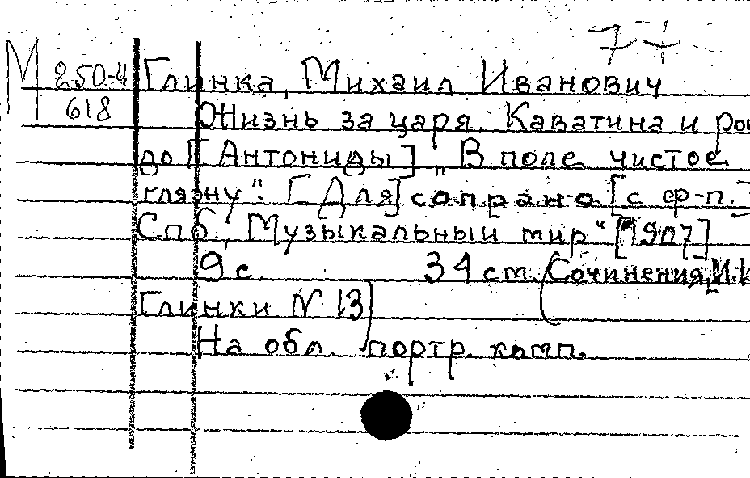 М 250-4
618
Глинка, Михаил Иванович
Жизнь за царя. Каватина и рон
до [Антониды] „В поле чистое
гляжу". [Для] сопрано [с ф-п.]
Спб, „Музыкальный мир" [1907]
9 с. 34 см. (Сочинения М.И.
Глинки N 13)
На обл. портр. комп.